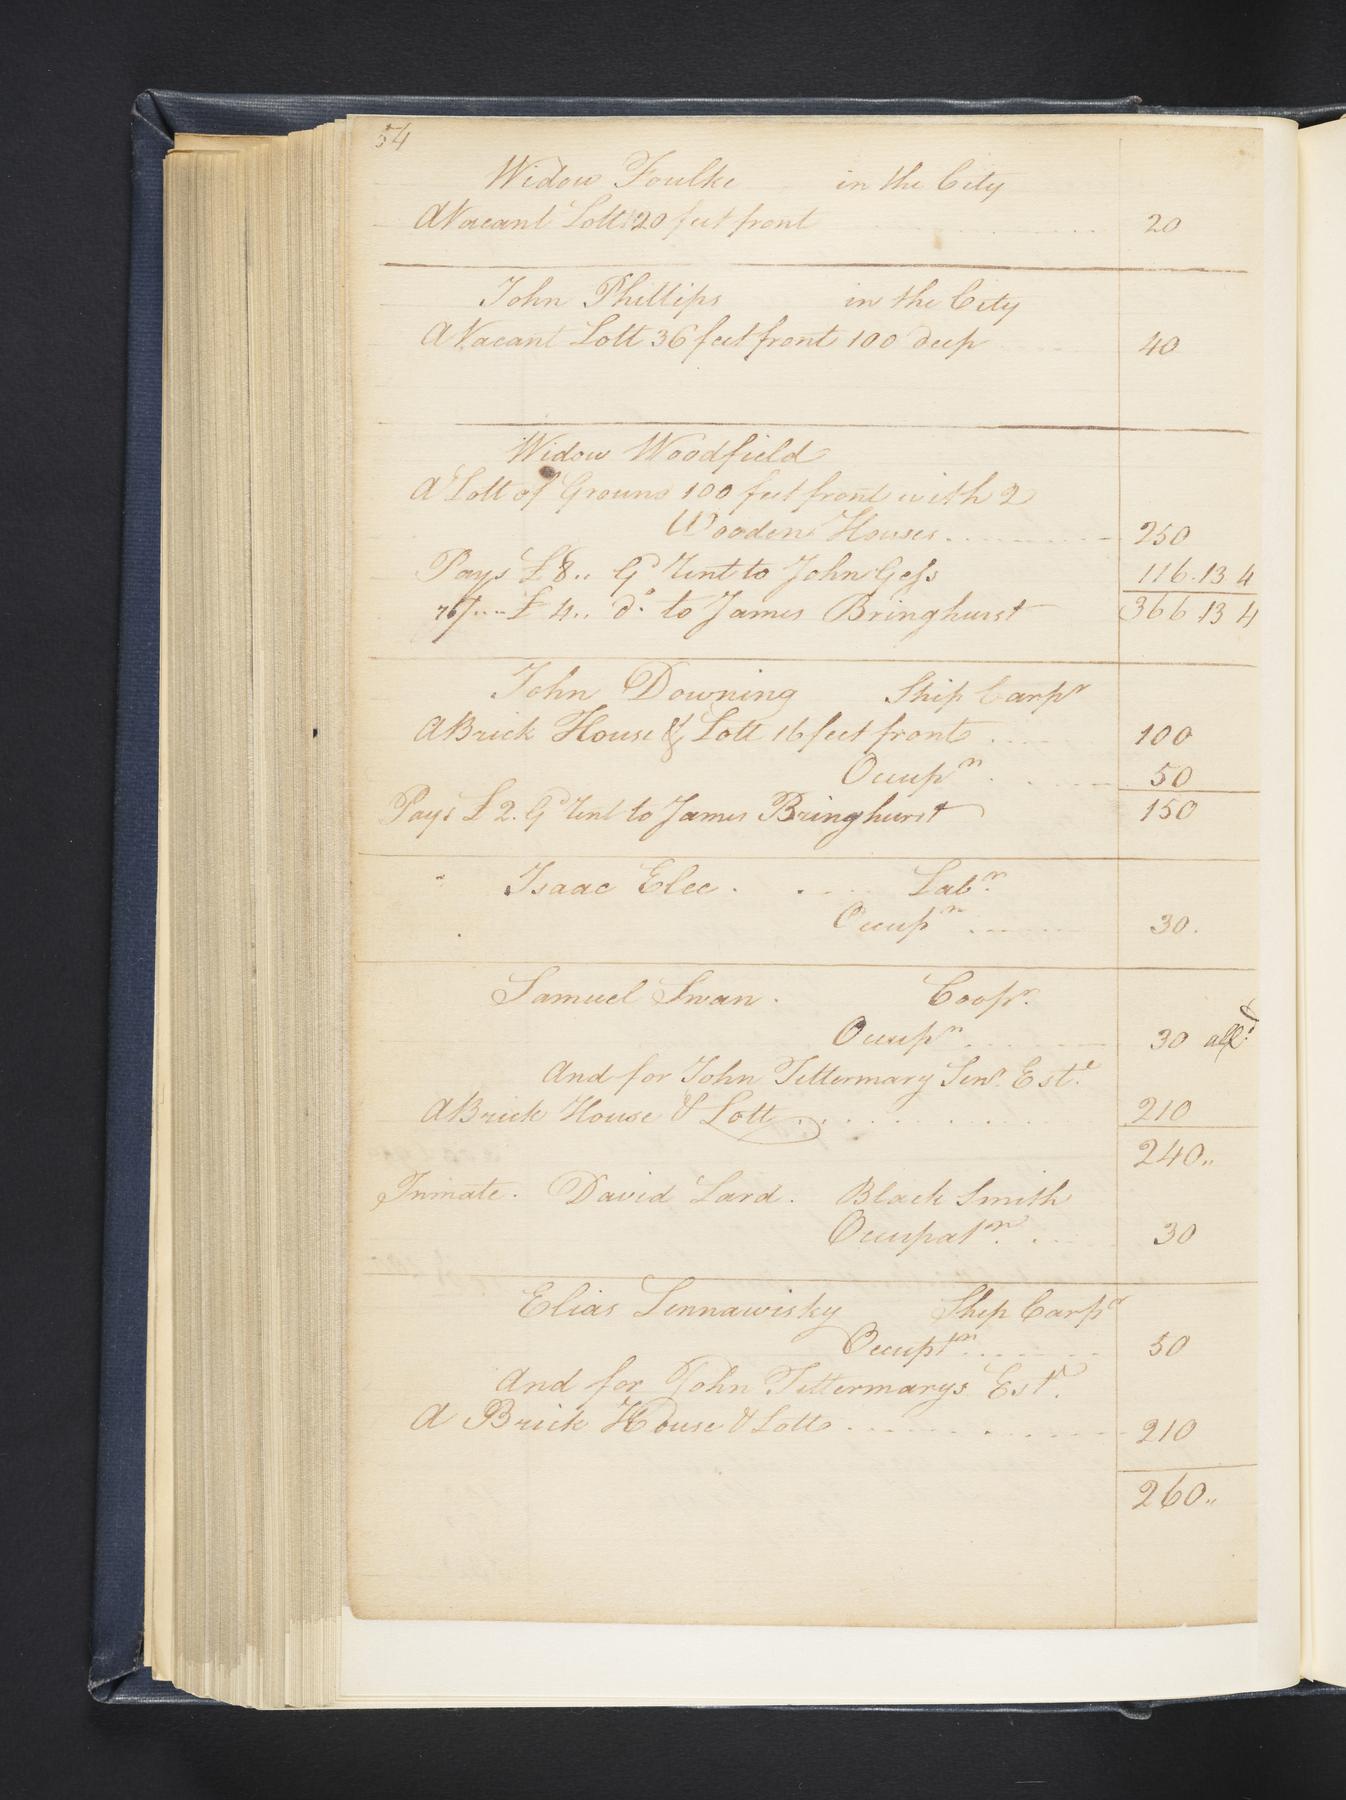 54
Widow Foulke in the City
A Vacant Lott 20 feet front 20
John Phillips in the City
A Vacant Lott 36 feet front 100 deep 40
Widow Woodfield
A Lott of Ground 100 feet front with 2
Wooden Houses 250
Pays £8.. Gd Rent to John Gess 116.13 4
£4.. do to James Bringhurst 366 13 4
John Downing Ship Carpr
A Brick House & Lott 16 feet front 100
Occupn 50
Pays £2. Gd Rent to James Bringhurst 150
Isaac Elee. Labr.
Occupn 30.
Samuel Swan. Coopr.
Occupn 30
And for John Tittermary Senr. Este.
A Brick House & Lott 210
240..
Inmate. David Lard. Black Smith
Occupatn. 30
Elias Lennawisky Ship Carpr
Occuptn 50
And for John Tittermarys Este.
A Brick House & Lott 210
260..